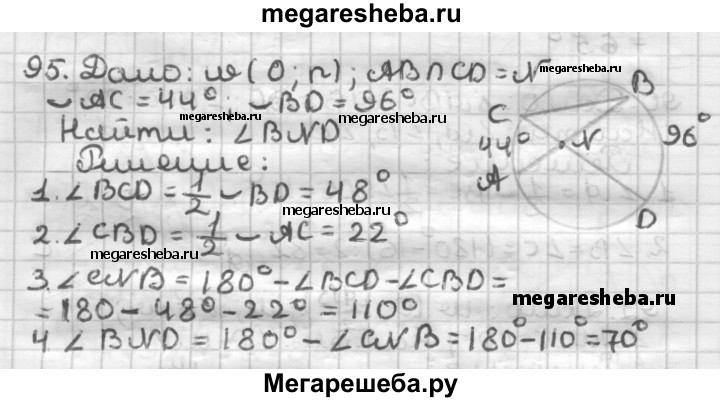 megaresheba.ru
95. Дано: w(O;r); AB∩CD=N
megaresheba.ru
◡AC=44° ◡BD=96°
megaresheba.ru
Найти: ∠BND
megaresheba.ru
Решение:
B
C
44°
N
96°
A
D
1. ∠BCD = 1/2 ◡BD = 48°
megaresheba.ru
2. ∠CBD = 1/2 ◡AC = 22°
megaresheba.ru
3. ∠CNB = 180° - ∠BCD - ∠CBD =
megaresheba.ru
= 180 - 48° - 22° = 110°
4. ∠BND = 180° - ∠CNB = 180° - 110° = 70°
Мегарешеба.ру